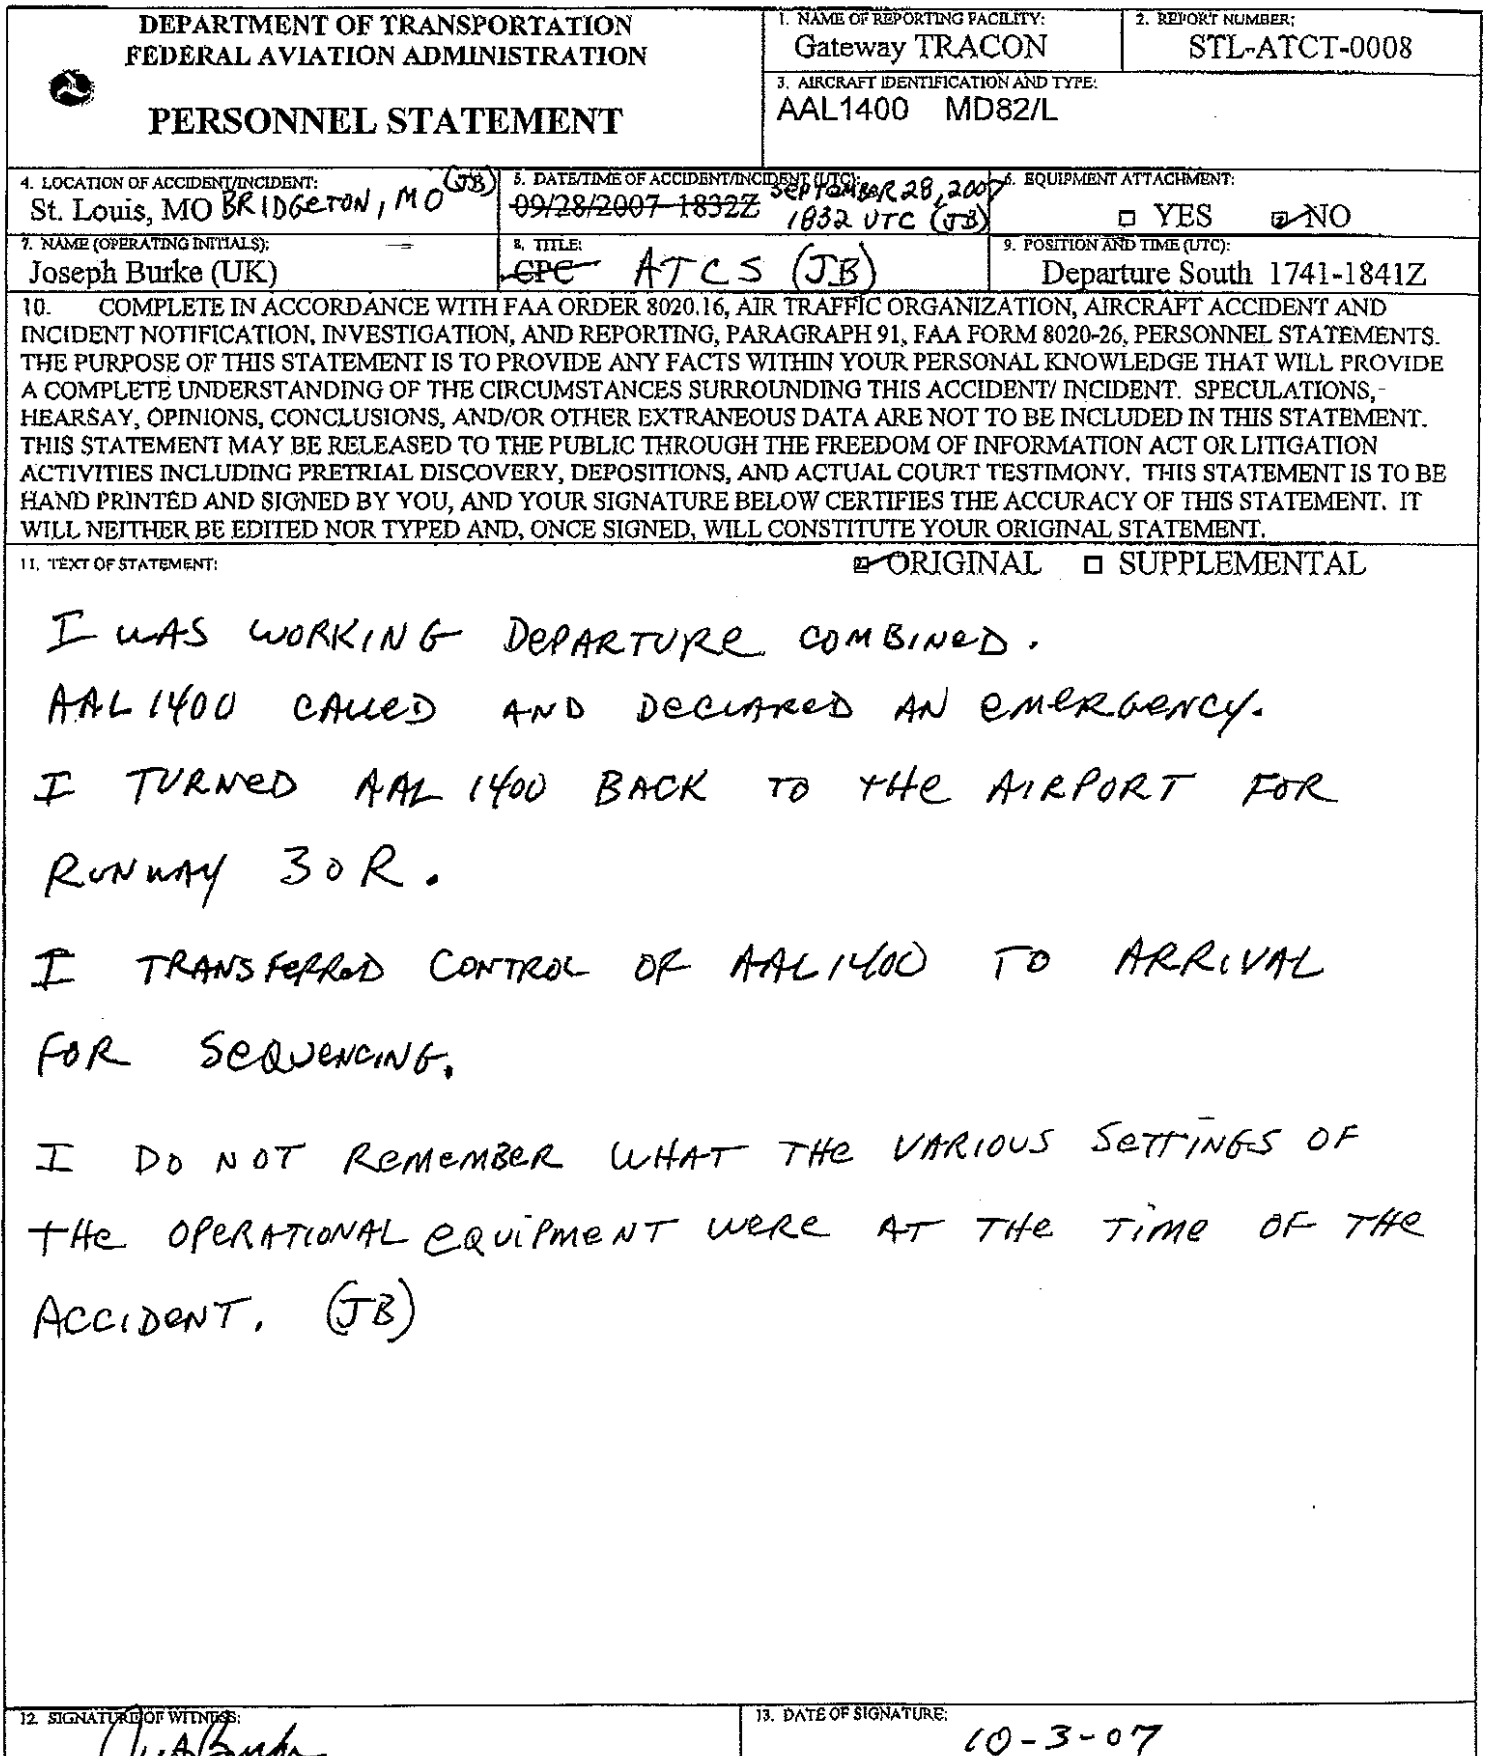 DEPARTMENT OF TRANSPORTATION
FEDERAL AVIATION ADMINISTRATION
PERSONNEL STATEMENT
1. NAME OF REPORTING FACILITY:
Gateway TRACON
2. REPORT NUMBER:
STL-ATCT-0008
3. AIRCRAFT IDENTIFICATION AND TYPE:
AAL1400 MD82/L
4. LOCATION OF ACCIDENT/INCIDENT:
St. Louis, MO BRIDGETON, MO (JB)
5. DATE/TIME OF ACCIDENT/INCIDENT (UTC):
09/28/2007 1832Z SEPTEMBER 28, 2007
1832 UTC (JB)
6. EQUIPMENT ATTACHMENT:
YES NO
7. NAME (OPERATING INITIALS):
Joseph Burke (UK)
8. TITLE:
CPC ATCS (JB)
9. POSITION AND TIME (UTC):
Departure South 1741-1841Z
10. COMPLETE IN ACCORDANCE WITH FAA ORDER 8020.16, AIR TRAFFIC ORGANIZATION, AIRCRAFT ACCIDENT AND
INCIDENT NOTIFICATION, INVESTIGATION, AND REPORTING, PARAGRAPH 91, FAA FORM 8020-26, PERSONNEL STATEMENTS.
THE PURPOSE OF THIS STATEMENT IS TO PROVIDE ANY FACTS WITHIN YOUR PERSONAL KNOWLEDGE THAT WILL PROVIDE
A COMPLETE UNDERSTANDING OF THE CIRCUMSTANCES SURROUNDING THIS ACCIDENT/ INCIDENT. SPECULATIONS,
HEARSAY, OPINIONS, CONCLUSIONS, AND/OR OTHER EXTRANEOUS DATA ARE NOT TO BE INCLUDED IN THIS STATEMENT.
THIS STATEMENT MAY BE RELEASED TO THE PUBLIC THROUGH THE FREEDOM OF INFORMATION ACT OR LITIGATION
ACTIVITIES INCLUDING PRETRIAL DISCOVERY, DEPOSITIONS, AND ACTUAL COURT TESTIMONY. THIS STATEMENT IS TO BE
HAND PRINTED AND SIGNED BY YOU, AND YOUR SIGNATURE BELOW CERTIFIES THE ACCURACY OF THIS STATEMENT. IT
WILL NEITHER BE EDITED NOR TYPED AND, ONCE SIGNED, WILL CONSTITUTE YOUR ORIGINAL STATEMENT.
11. TEXT OF STATEMENT: ORIGINAL SUPPLEMENTAL
I WAS WORKING DEPARTURE COMBINED.
AAL1400 CALLED AND DECLARED AN EMERGENCY.
I TURNED AAL1400 BACK TO THE AIRPORT FOR
RUNWAY 30R.
I TRANSFERRED CONTROL OF AAL1400 TO ARRIVAL
FOR SEQUENCING.
I DO NOT REMEMBER WHAT THE VARIOUS SETTINGS OF
THE OPERATIONAL EQUIPMENT WERE AT THE TIME OF THE
ACCIDENT. (JB)
12. SIGNATURE OF WITNESS:
13. DATE OF SIGNATURE:
10-3-07